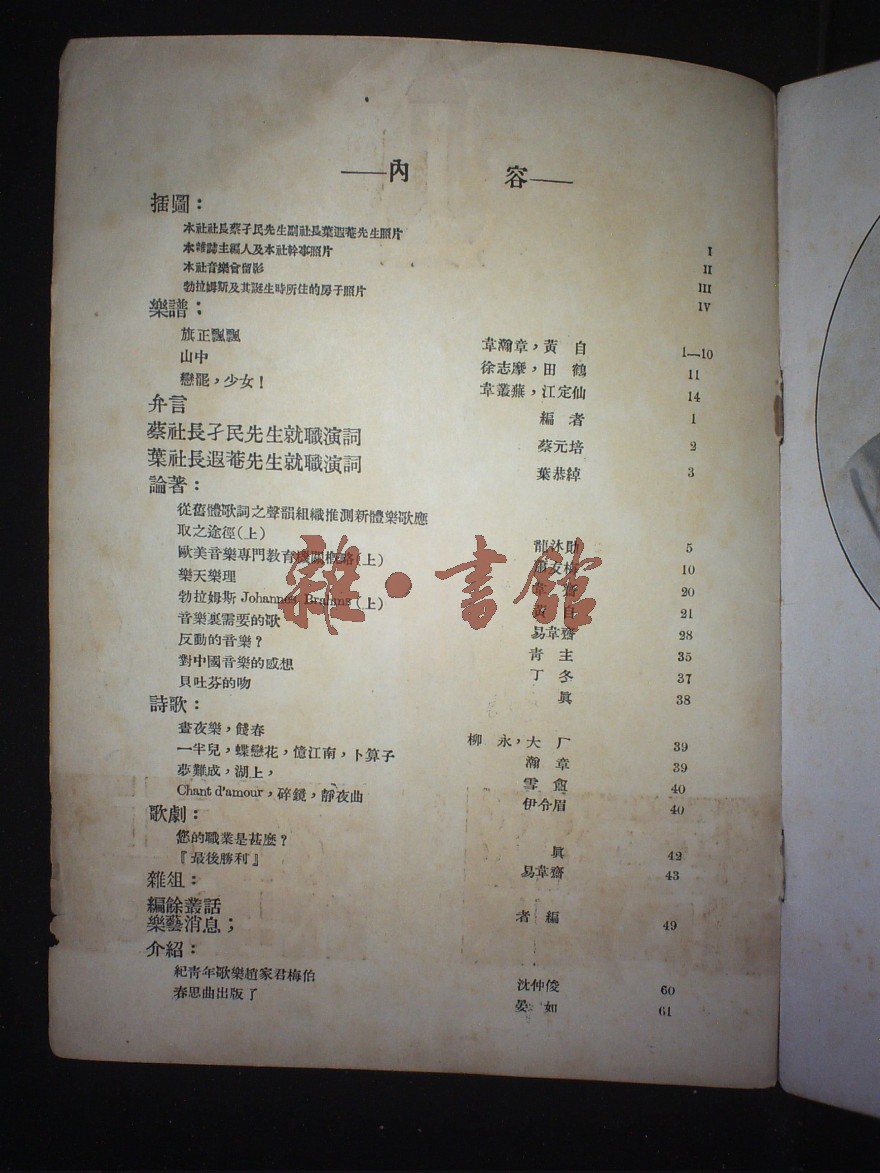 ——內　容——
插圖：
本社社長蔡孑民先生副社長葉遐菴先生照片 I
本雜誌主編人及本社幹事照片 II
本社音樂會留影 III
勃拉姆斯及其誕生時所住的房子照片 IV
樂譜：
旗正飄飄 韋瀚章，黃自 1—10
山中 徐志摩，田鶴 11
戀罷，少女！ 韋叢蕪，江定仙 14
弁言 編者 1
蔡社長孑民先生就職演詞 蔡元培 2
葉社長遐菴先生就職演詞 葉恭綽 3
論著：
從舊體歌詞之聲韻組織推測新體樂歌應
取之途徑（上） 龍沐勛 5
歐美音樂專門教育機關概略（上） 友梅 10
樂天樂理 齋 20
勃拉姆斯 Johannes Brahms（上） 自 21
音樂裏需要的歌 易韋齋 28
反動的音樂？ 青主 35
對中國音樂的感想 丁冬 37
貝吐芬的吻 眞 38
詩歌：
晝夜樂，餞春 柳永，大厂 39
一半兒，蝶戀花，憶江南，卜算子 瀚章 39
夢難成，湖上， 雪 40
Chant d'amour，碎鏡，靜夜曲 伊令眉 40
歌劇：
您的職業是甚麼？ 眞 42
『最後勝利』 易韋齋 43
雜俎：
編餘叢話
樂藝消息； 者編 49
介紹：
紀青年歌樂趙家君梅伯 沈仲俊 60
春思曲出版了 晏如 61
雜·書館